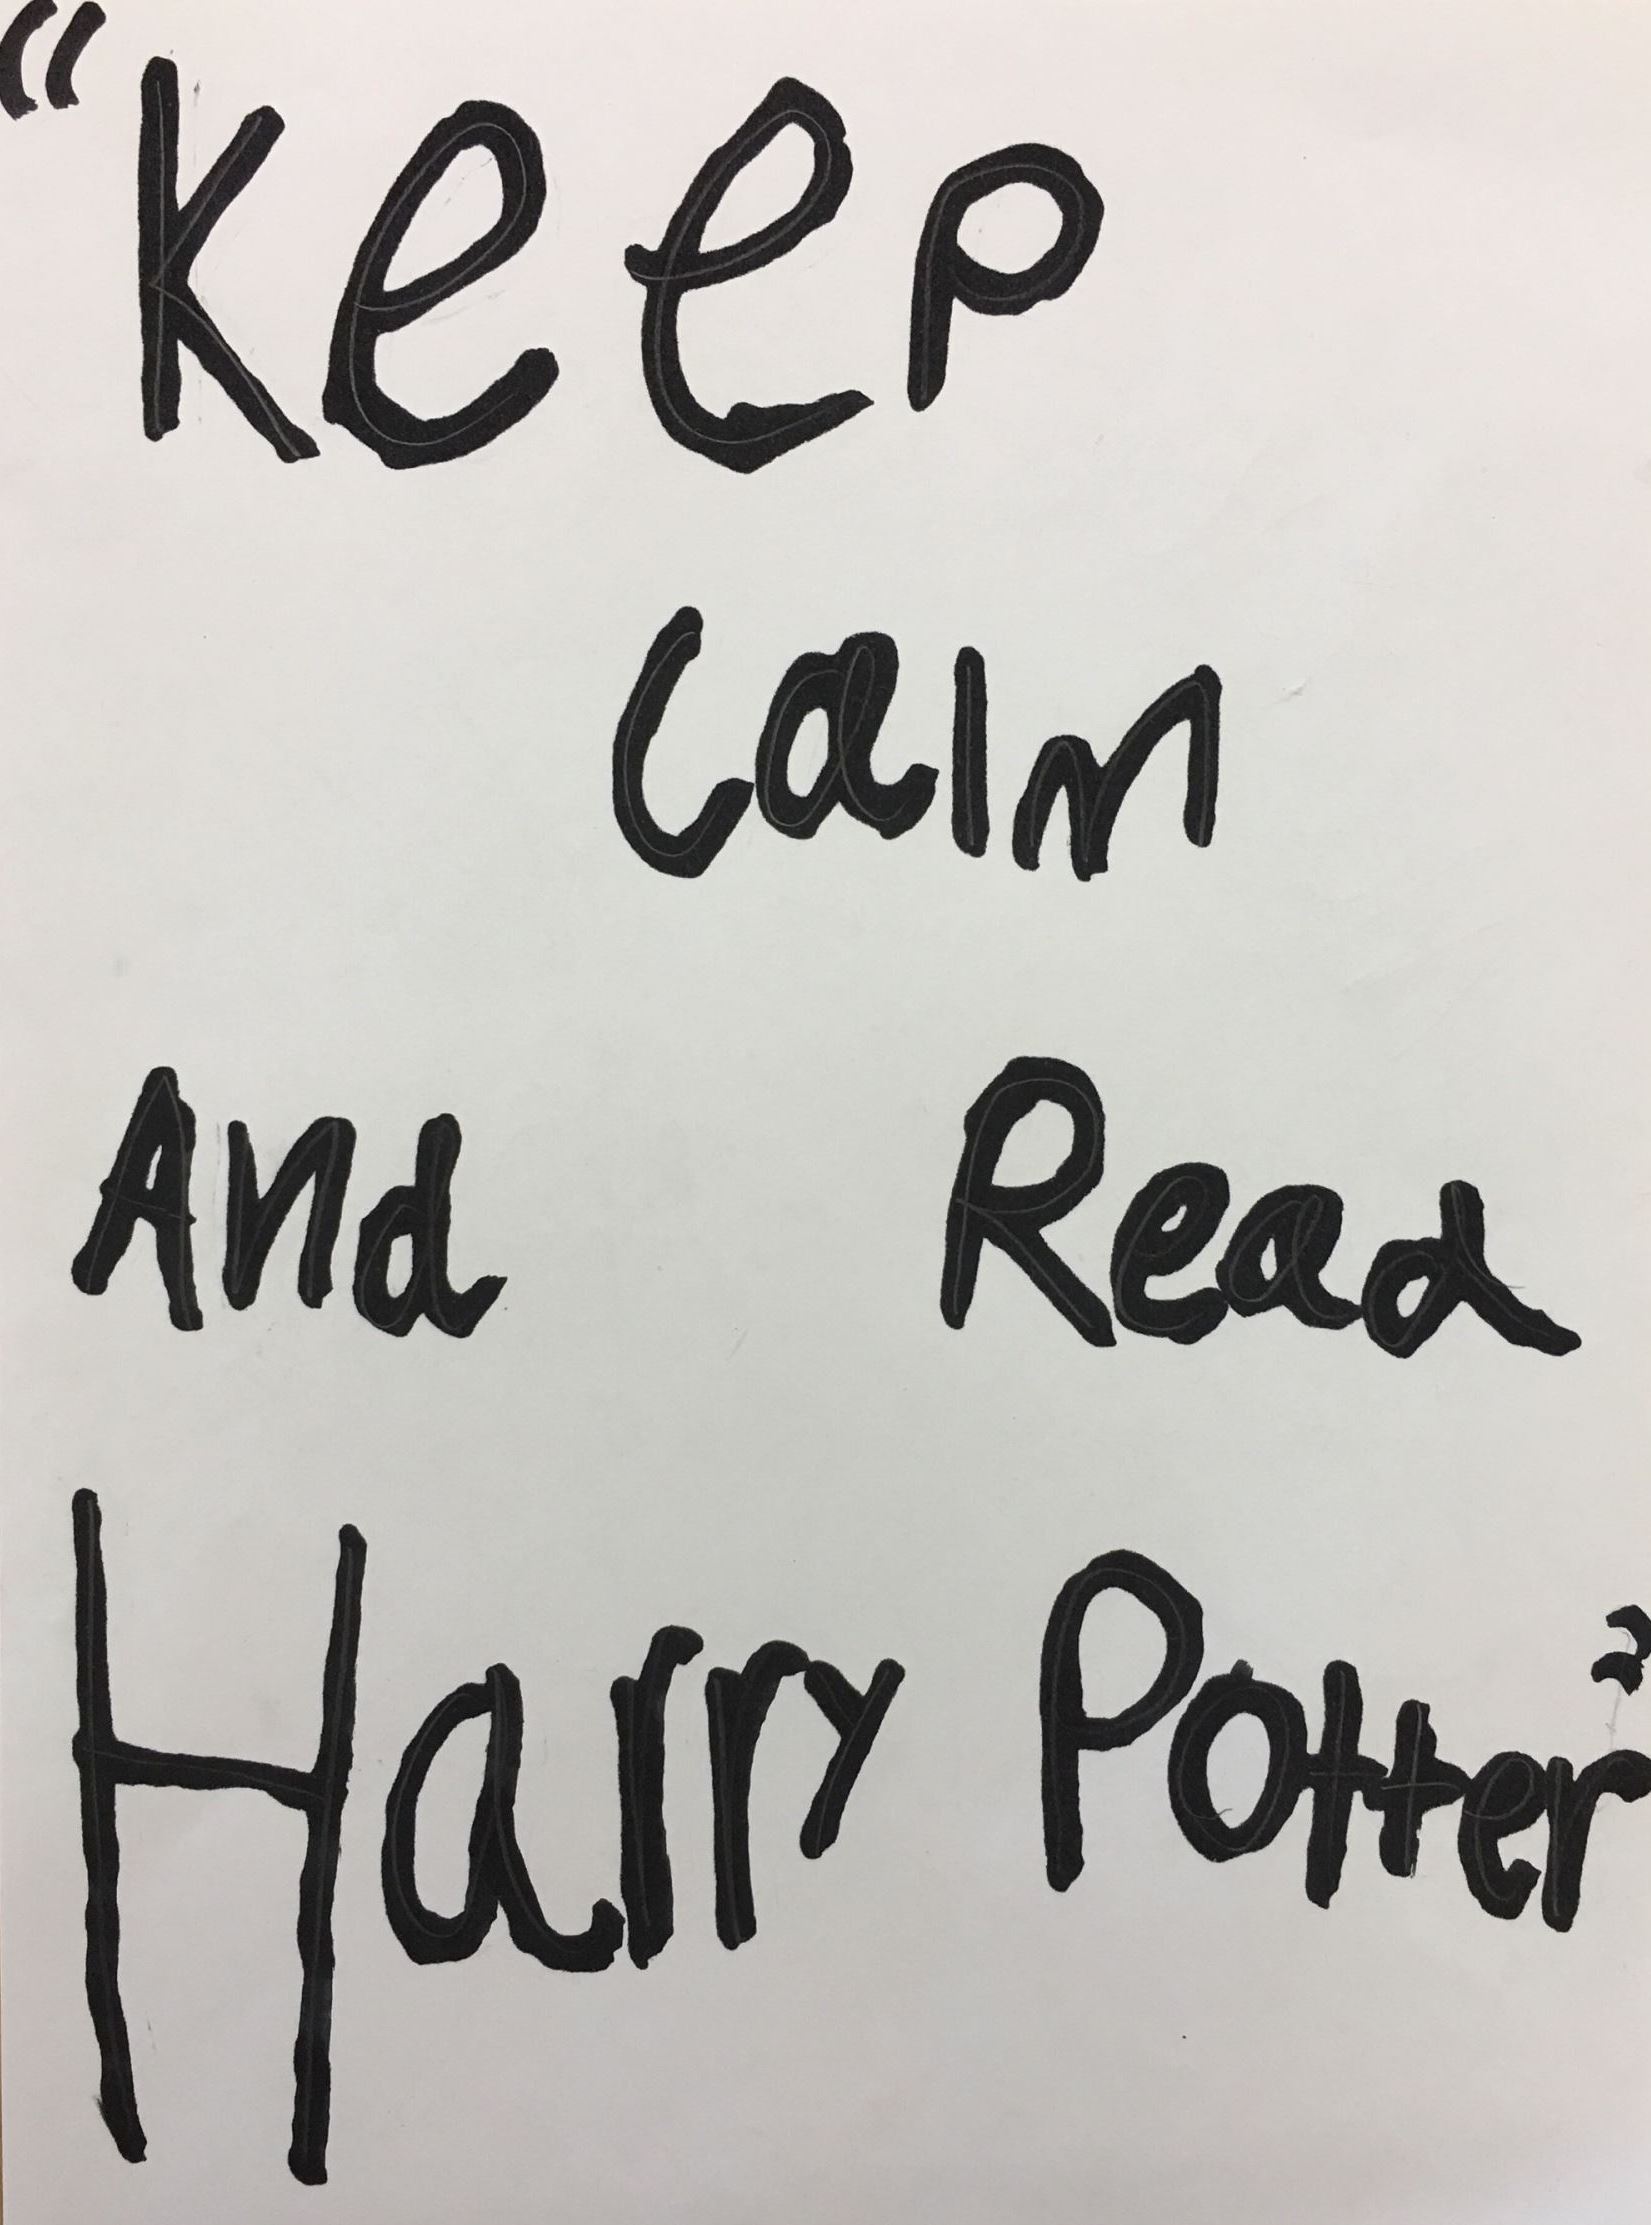 "Keep
Calm
And Read
Harry Potter"